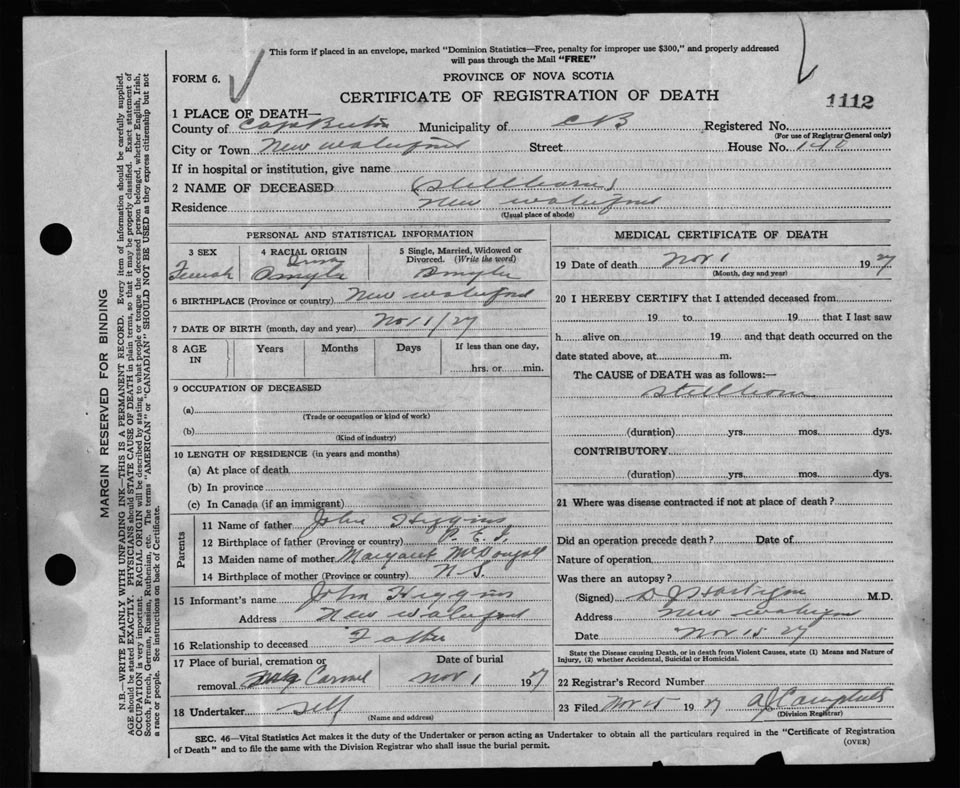 This form if placed in an envelope, marked "Dominion Statistics—Free, penalty for improper use $300," and properly addressed
will pass through the Mail "FREE"
FORM 6.
PROVINCE OF NOVA SCOTIA
CERTIFICATE OF REGISTRATION OF DEATH
1112
1 PLACE OF DEATH—
County of Cape Breton Municipality of C B Registered No.
(For use of Registrar General only)
City or Town New Waterford Street House No. 140
If in hospital or institution, give name
2 NAME OF DECEASED (Stillborn)
Residence New Waterford
(Usual place of abode)
PERSONAL AND STATISTICAL INFORMATION
3 SEX 4 RACIAL ORIGIN 5 Single, Married, Widowed or Divorced. (Write the word)
Female
6 BIRTHPLACE (Province or country) New Waterford
7 DATE OF BIRTH (month, day and year) Nov 1/27
8 AGE IN Years Months Days If less than one day,
hrs. or min.
9 OCCUPATION OF DECEASED
(a)
(Trade or occupation or kind of work)
(b)
(Kind of industry)
10 LENGTH OF RESIDENCE (in years and months)
(a) At place of death
(b) In province
(c) In Canada (if an immigrant)
Parents
11 Name of father John Higgins
12 Birthplace of father (Province or country) P. E. I.
13 Maiden name of mother Margaret McDougall
14 Birthplace of mother (Province or country) N S.
15 Informant's name John Higgins
Address New Waterford
16 Relationship to deceased Father
17 Place of burial, cremation or Date of burial
removal Carmel Nov 1 1927
18 Undertaker Self
(Name and address)
MEDICAL CERTIFICATE OF DEATH
19 Date of death Nov 1 1927
(Month, day and year)
20 I HEREBY CERTIFY that I attended deceased from
19 to 19 that I last saw
h alive on 19 and that death occurred on the
date stated above, at m.
The CAUSE of DEATH was as follows:—
Stillborn
(duration) yrs. mos. dys.
CONTRIBUTORY
(duration) yrs. mos. dys.
21 Where was disease contracted if not at place of death?
Did an operation precede death? Date of
Nature of operation
Was there an autopsy?
(Signed) M.D.
Address New Waterford
Date Nov 15 27
State the Disease causing Death, or in death from Violent Causes, state (1) Means and Nature of
Injury, (2) whether Accidental, Suicidal or Homicidal.
22 Registrar's Record Number
23 Filed Nov 15 1927
(Division Registrar)
SEC. 46—Vital Statistics Act makes it the duty of the Undertaker or person acting as Undertaker to obtain all the particulars required in the "Certificate of Registration
of Death" and to file the same with the Division Registrar who shall issue the burial permit.
(OVER)
MARGIN RESERVED FOR BINDING
N.B.—WRITE PLAINLY WITH UNFADING INK—THIS IS A PERMANENT RECORD. Every item of information should be carefully supplied.
AGE should be stated EXACTLY. PHYSICIANS should STATE CAUSE OF DEATH in plain terms, so that it may be properly classified. Exact statement of
OCCUPATION is very important. RACIAL ORIGIN will be described by stating to what people or tongue the deceased person belonged, whether English, Irish,
Scotch, French, German, Russian, Ruthenian, etc. The terms "AMERICAN" or "CANADIAN" SHOULD NOT BE USED as they express citizenship but not
a race or people. See instructions on back of Certificate.